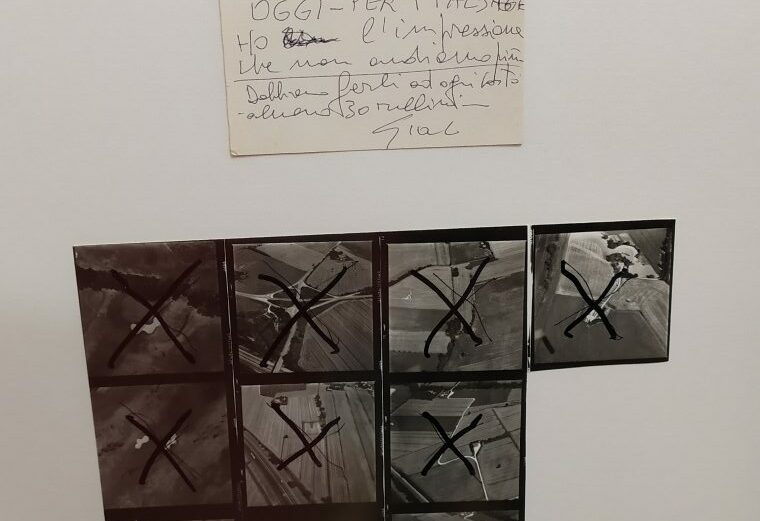 OGGI - PER
HO l'impressione
che non andiamo più
Dobbiamo farli ad ogni costo
almeno 30 rullini -